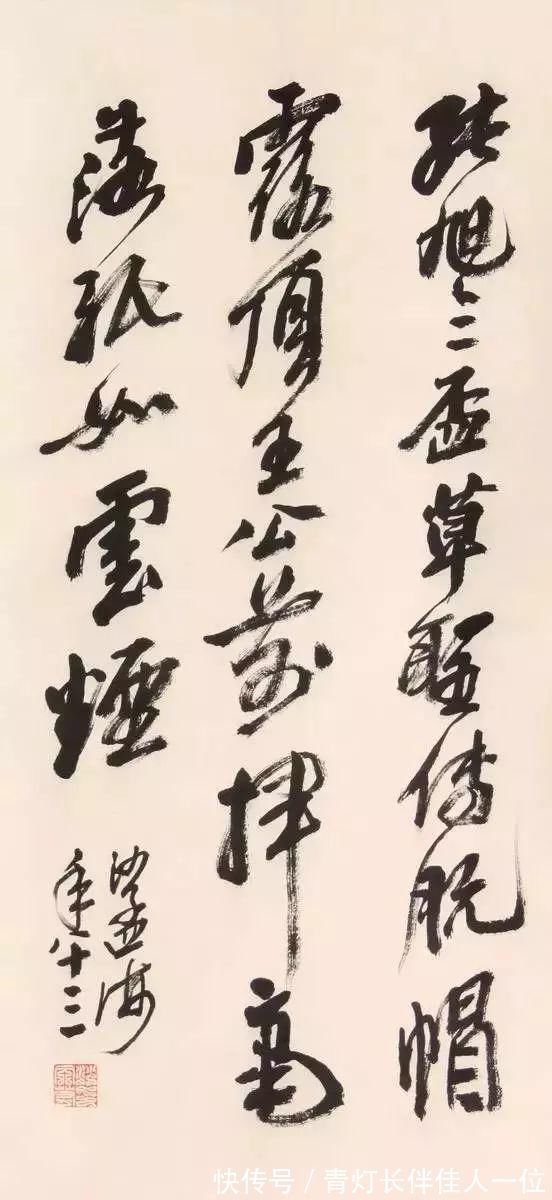 張旭三盃草聖傳脱帽
露頂王公前揮毫
落紙如雲煙
沙孟海
年八十三
快传号/青灯长伴佳人一位